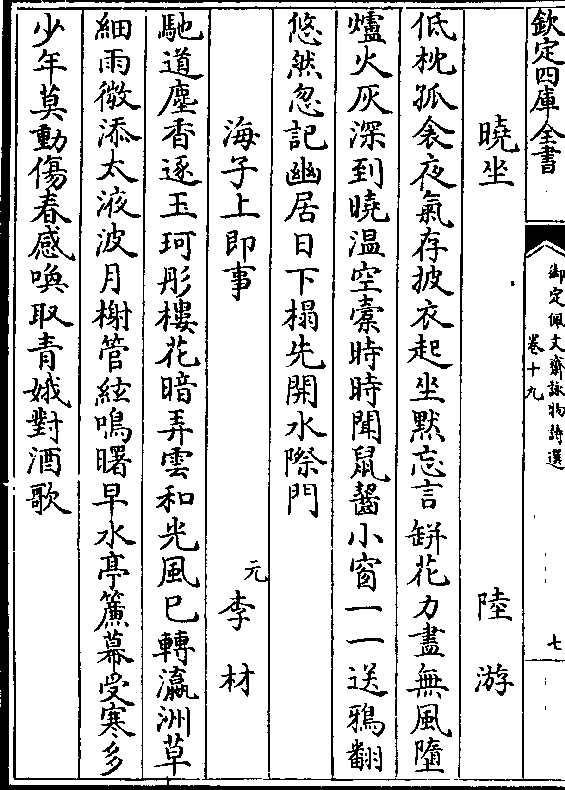 欽定四庫全書
御定佩文齋詠物詩選
卷十九
七
曉坐
陸游
低枕孤衾夜氣存披衣起坐默忘言缾花力盡無風墮
爐火灰深到曉温空槖時時聞鼠齧小窗一一送鴉翻
悠然忽記幽居日下榻先開水際門
海子上即事
元
李材
馳道塵香逐玉珂彤樓花暗弄雲和光風已轉瀛洲草
細雨微添太液波月榭管絃鳴曙早水亭簾幕受寒多
少年莫動傷春感喚取青娥對酒歌